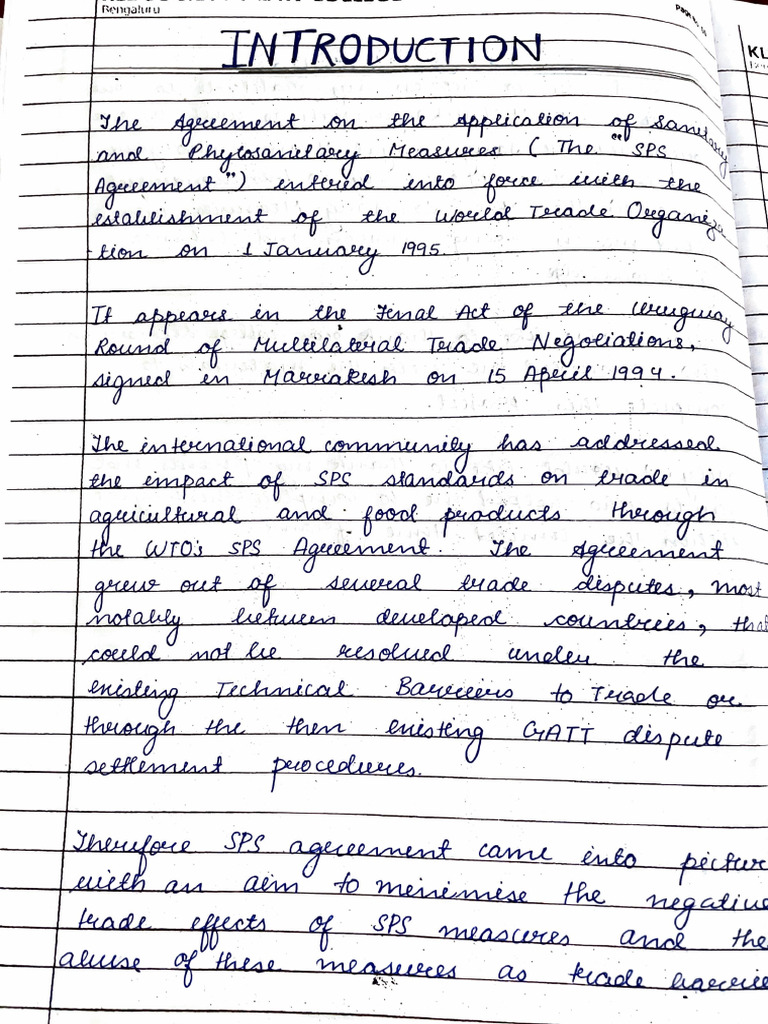 Bengaluru
INTRODUCTION
The Agreement on the Application of Sanitary
and Phytosanitary Measures ( The "SPS
Agreement") entered into force with the
establishment of the World Trade Organiza
tion on 1 January 1995.
It appears in the Final Act of the Uruguay
Round of Multilateral Trade Negotiations,
signed in Marrakesh on 15 April 1994.
The international community has addressed
the impact of SPS standards on trade in
agricultural and food products through
the WTO's SPS Agreement. The Agreement
grew out of several trade disputes, most
notably between developed countries, that
could not be resolved under the
existing Technical Barriers to Trade or
through the then existing GATT dispute
settlement procedures.
Therefore SPS agreement came into pictur
with an aim to minimise the negative
trade effects of SPS measures and the
abuse of these measures as trade barrie
KL